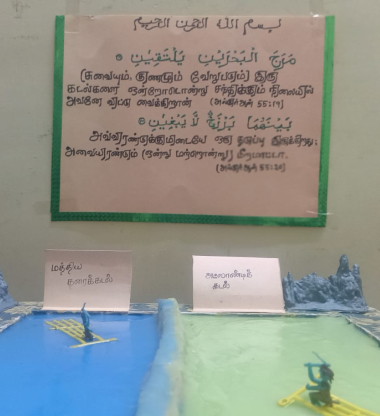 بسم الله الرحمن الرحيم
مَرَجَ الْبَحْرَيْنِ يَلْتَقِيٰنِ ۝
(சுவையும், குணமும் வேறுபடும்) இரு
கடல்களை ஒன்றோடொன்று சந்திக்கும் நிலையில்
அவனே விட்டு வைக்கிறான் (அல்குர்ஆன் 55:19)
بَيْنَهُمَا بَرْزَخٌ لَّا يَبْغِيٰنِ ۝
அவ்விரண்டுக்குமிடையே ஒரு தடுப்பு இருக்கிறது;
அவையிரண்டும் (ஒன்று மற்றொன்றை) மீறமாட்டா.
(அல்குர்ஆன் 55:20)
மத்திய
தரைக்கடல்
அட்லாண்டிக்
கடல்